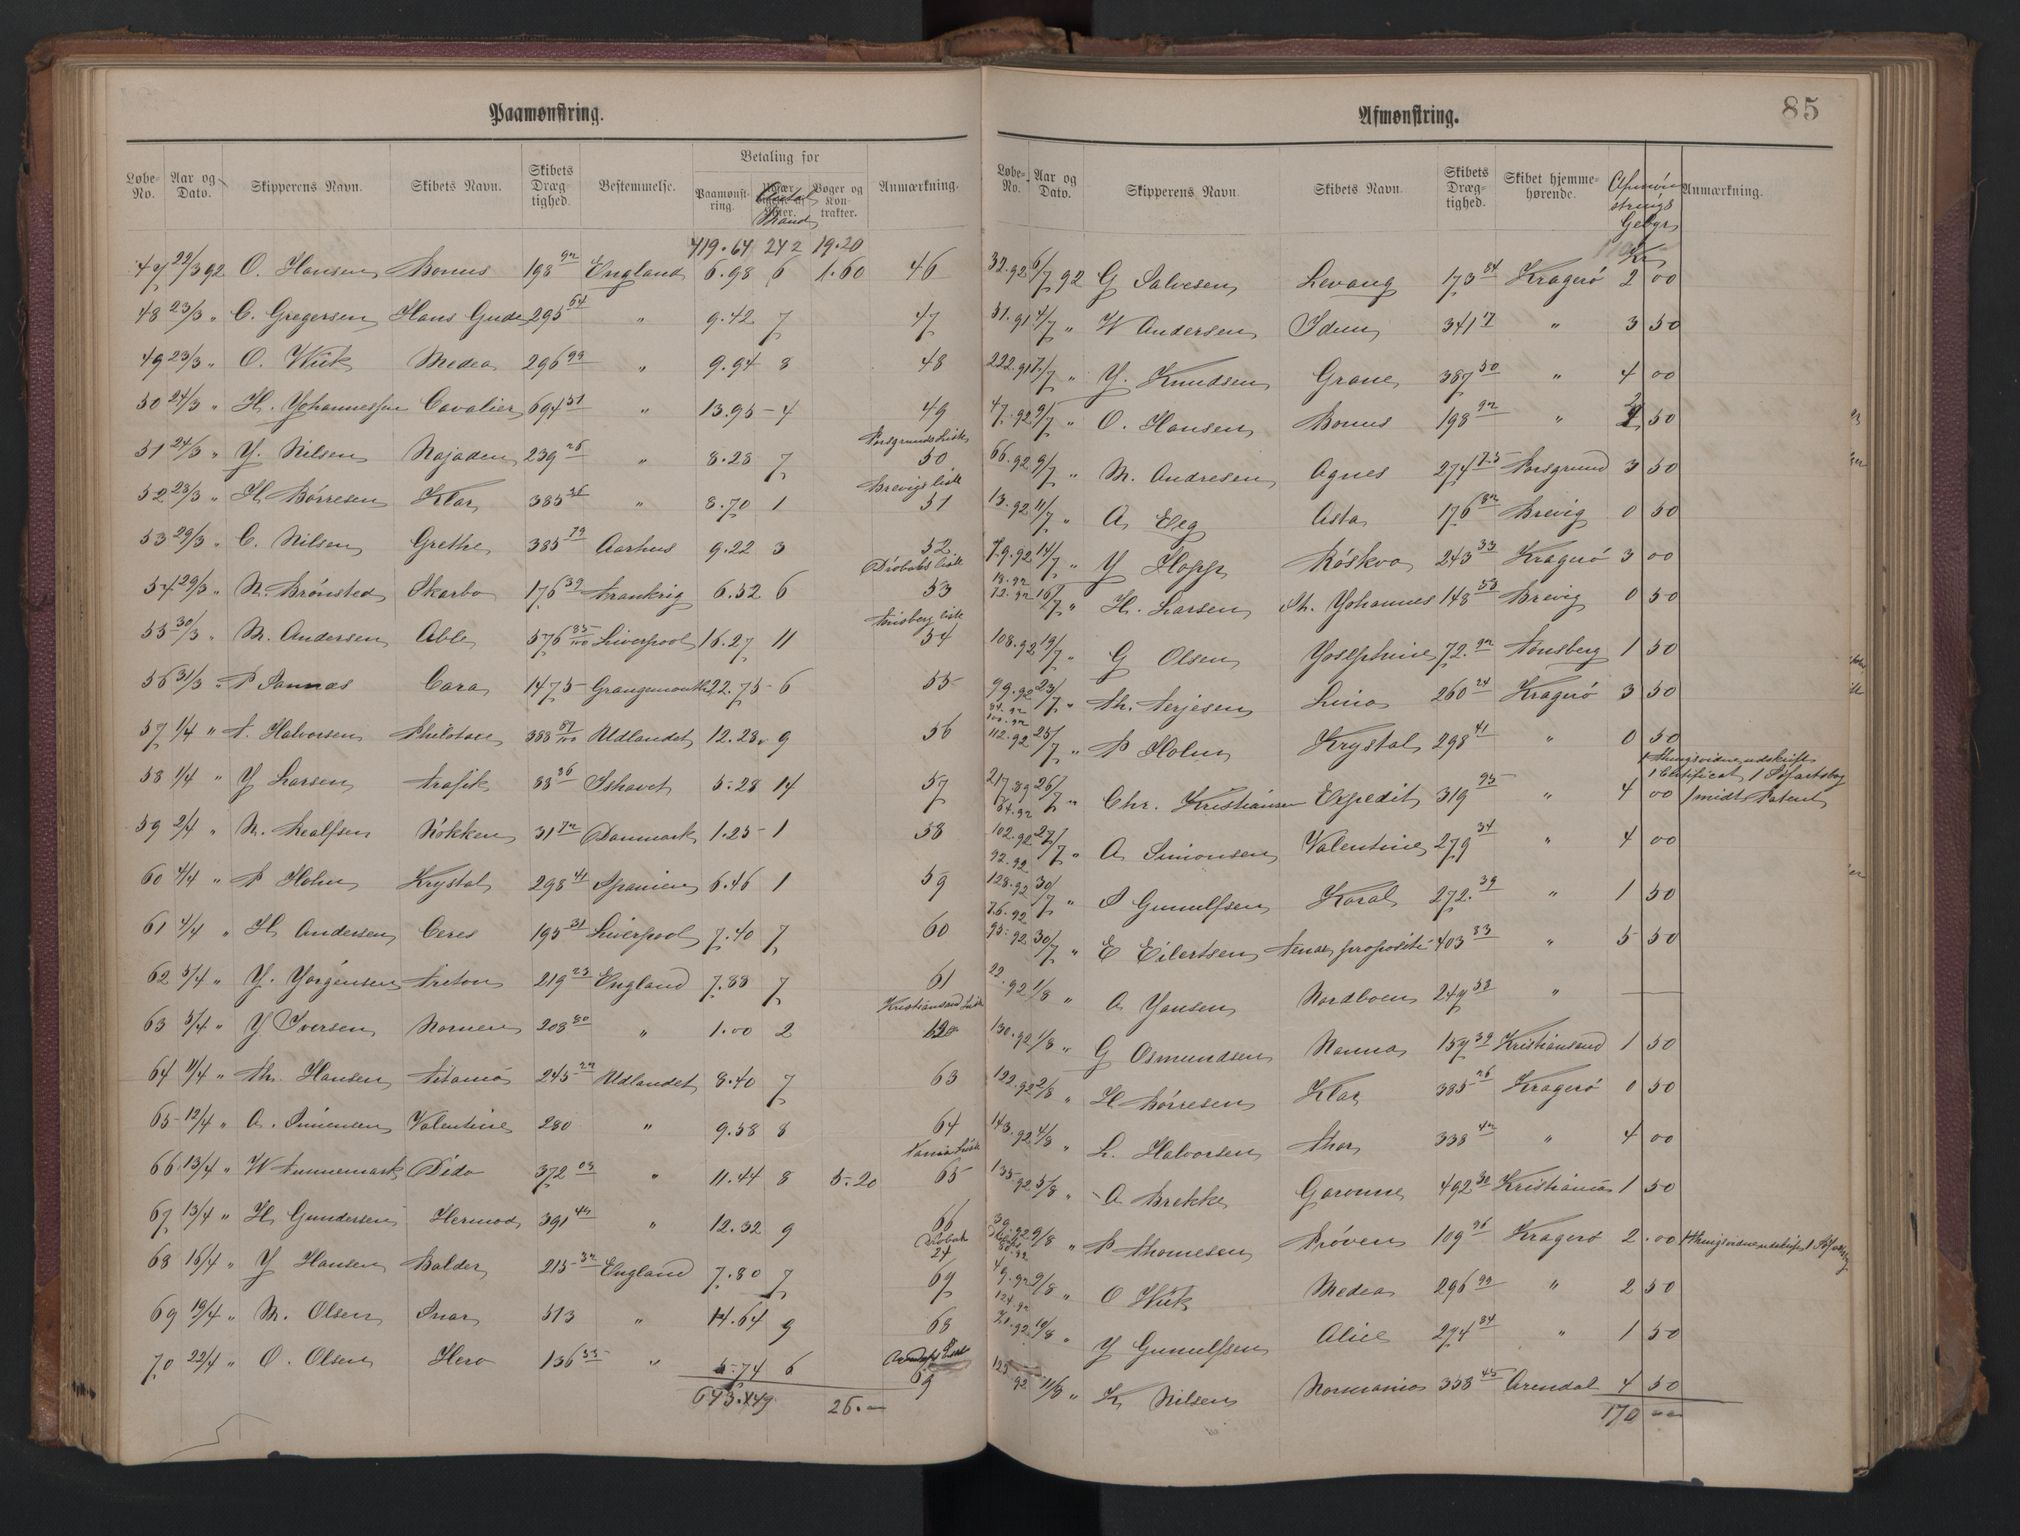 Paamønstring.
Løbe-No. Aar og Dato. Skipperens Navn. Skibets Navn. Skibets Dræg-tighed. Bestemmelse. Betaling for Paamønst-ring. Bøger og Kon-trakter. Anmærkning.
419.64 242 19.20
47 22/3 92 O. Hansen Bonus 198 92 England 6.98 6 1.60 46
48 23/3 " C. Gregersen Hans Gude 295 64 " 9.42 7 47
49 23/3 " O. Wiik Medea 296 99 " 9.94 8 48
50 24/3 " H. Johannessen Cavalier 694 51 " 13.95 - 4 49
Porsgrunds Liste
51 24/3 " J. Nilsen Najaden 239 26 " 8.28 7 50
Brevigs liste
52 23/3 " H Børresen Klar 385 26 " 8.70 1 51
53 29/3 " C. Nilsen Grethe 385 79 Aarhus 9.22 3 52
Drøbaks liste
54 29/3 " N. Brønsted Skarbo 176 39 Frankrig 6.52 6 53
Tønsberg liste
55 30/3 " M. Andersen Able 576 85/100 Liverpool 16.27 11 54
56 31/3 " P Sannæs Cara 1475 - Grangemouth 22.75 - 6 55
57 1/4 " A. Halvorsen Philotace 388 87/100 Udlandet 12.28 9 56
58 1/4 " J Larsen Trafik 88 36 Ishavet 5.28 14 57
59 2/4 " N. Realfsen Nökken 31 72 Danmark 1.25 - 1 58
60 4/4 " P Holm Krystal 298 41 Spanien 6.46 1 59
61 4/4 " H Andersen Ceres 195 31 Liverpool 7.40 7 60
62 5/4 " J. Jørgensen Treton 219 23 England 7.88 7 61
Kristiansand Liste
63 5/4 " J Iversen Nornen 208 80 " 1.00 2
64 11/4 " Th. Hansen Titania 245 22 Udlandet 8.40 7 63
65 12/4 " A. Simonsen Valentine 280 " 9.58 8 64
66 13/4 " W Ammemark Dido 372 03 " 11.44 8 5.20 65
67 13/4 " H Gundersen Hermod 391 44 " 12.32 9 66
Drøbak 24
68 16/4 " J Hansen Balder 215 32 England 7.80 7 67
69 19/4 " M. Olsen Snar 513 " 14.64 9 68
70 22/4 " O. Olsen Hero 136 55 " 5.74 6 69
26.-
85
Afmønstring.
Løbe-No. Aar og Dato. Skipperens Navn. Skibets Navn. Skibets Dræg-tighed. Skibet hjemme-hørende. Afmønstrings Gebyr Anmærkning.
Kr
32.92 6/7 92 G Salvesen Levang 173 84 Kragerö 2 00
51.91 4/7 " W Andersen Idun 341 7 " 3 50
222.91 7/7 " J. Knudsen Grane 387 50 " 4 00
47.92 9/7 " O. Hansen Bonus 198 92 " 2 50
66.92 9/7 " M. Andresen Agnes 274 75 Porsgrund 3 50
13.92 11/7 " A Eeg Asta 176 82 Brevig 0 50
79.92 14/7 " J Hopp Röskva 243 33 Kragerö 3 00
72.92 16/7 " H. Larsen St. Johannes 148 53 Brevig 0 50
108.92 19/7 " G Olsen Josephine 72.92 Tønsberg 1 50
99.92 23/7 " Th. Terjesen Lina 260 24 Kragerö 3 50
84.92
100.92
112.92 25/7 " P Holm Krystal 298 41 " 0 50
1 Thingsvidneudskrift
1 Certificat 1 Söfartsbog
217.89 26/7 " Chr. Kristiansen Expedit 319 95 " 4 00 1 midt. Patent
84.92
102.92 27/7 " A Simonsen Valentine 279 34 " 4 00
92.92
128.92 30/7 " S Gunulfsen Koral 272.39 " 1 50
76.92
95.92 30/7 " E Eilertsen Tenax propositi 403 83 " 5 50
22.92 1/8 " A Jansen Nordboen 249 53 " —
130.92 1/8 " G Osmundsen Nanna 159 39 Kristiansand 1 50
122.92 2/8 " H Börresen Klar 385 26 Kragerö 0 50
143.92 4/8 " L. Halvorsen Thor 338 42 " 4 00
135.92 5/8 " A Brekke Garonne 492 30 Kristiania 1 50
39.92 9/8 " P Thomesen Prøven 109 96 Kragerö 2.00 1 Thingsvidneudskrift
49.92 9/8 " O Wiik Medea 296 99 " 2 50
124.92
71.92 10/8 " J Gunulfsen Alice 274 84 " 1 50
125.92 11/8 " K Nilsen Normania 358 45 Arendal 4 50
170